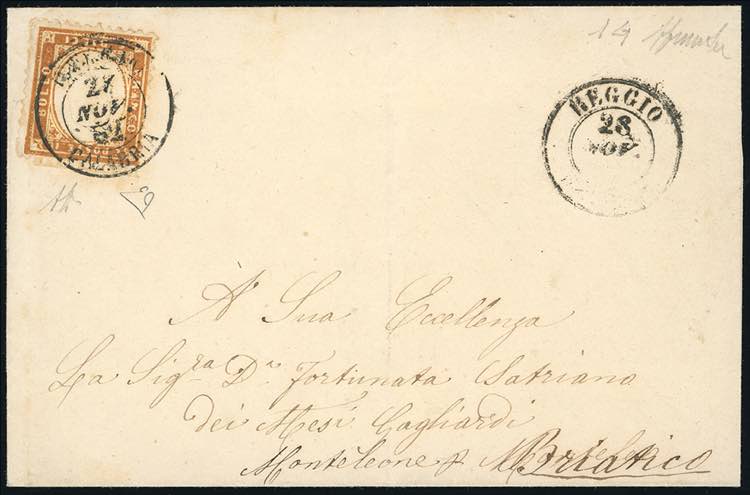 27
NOV
CALABRIA
REGGIO
28
NOV.
A Sua Eccellenza
La Sig.ra D.a Fortunata Satriano
dei Mesi Gagliardi
Monteleone p Briatico